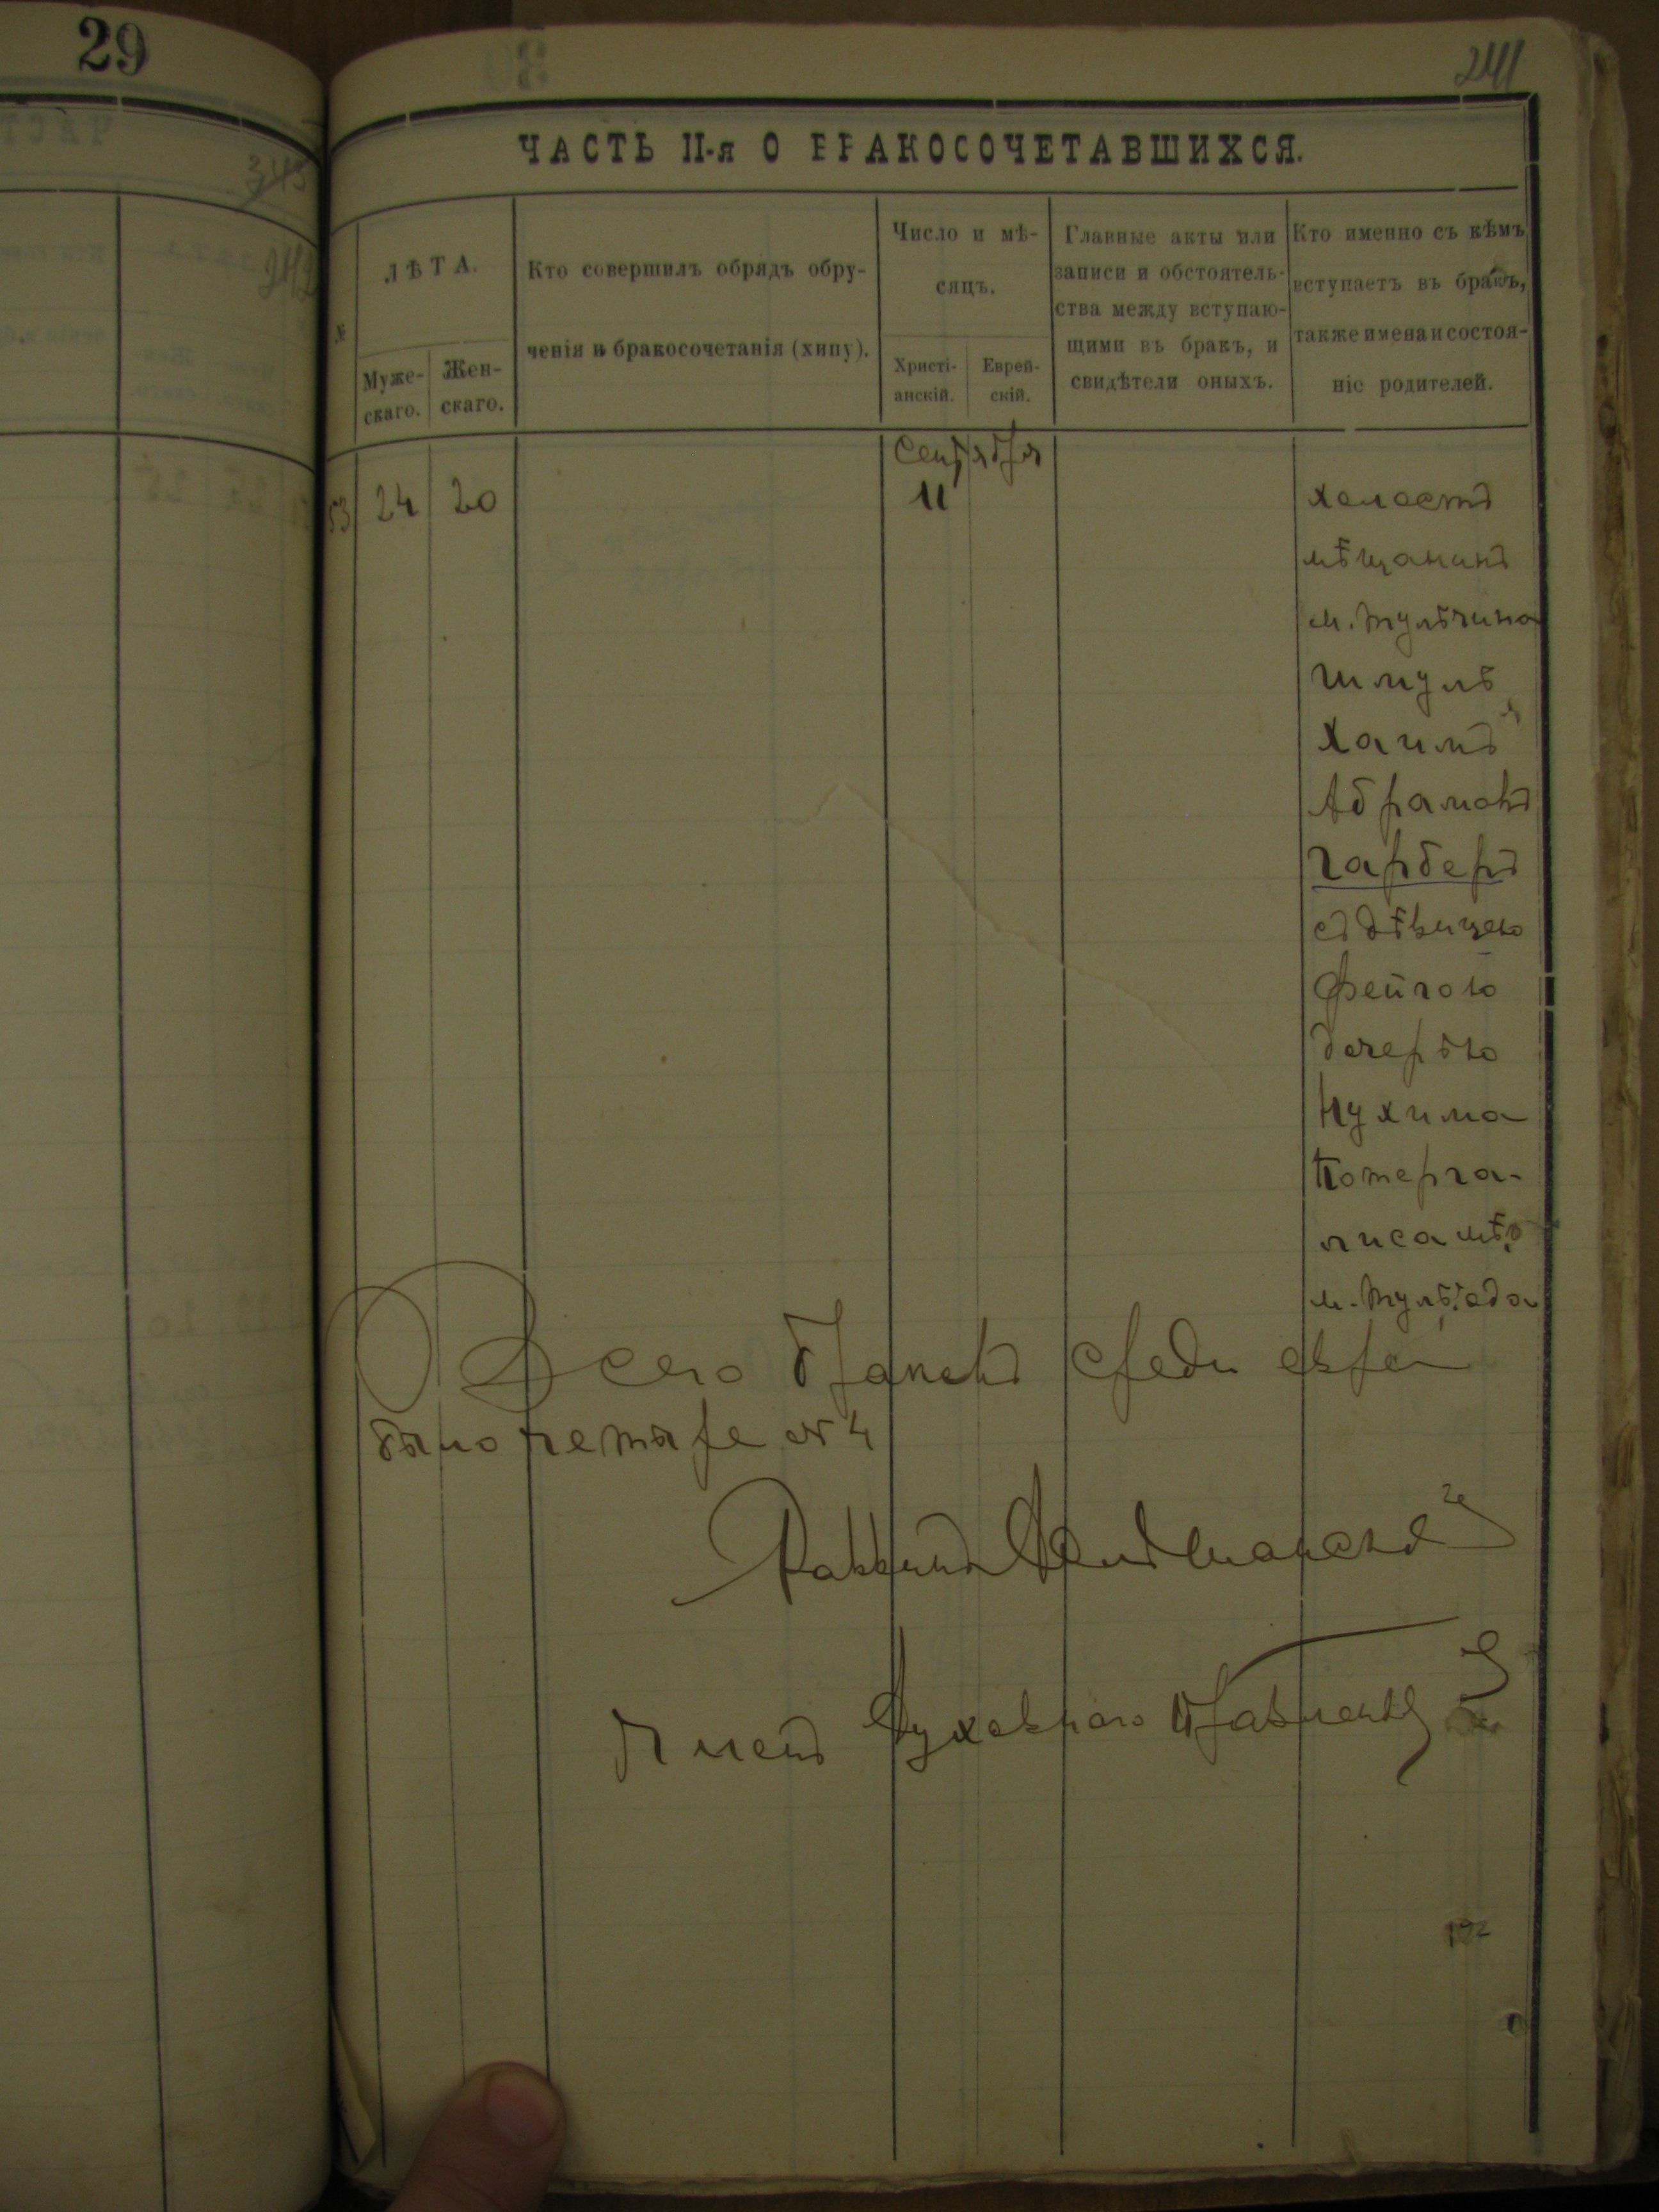 29
343
242
241
ЧАСТЬ II-я О БРАКОСОЧЕТАВШИХСЯ.
№
ЛѢТА.
Муже-
скаго.
Жен-
скаго.
Кто совершилъ обрядъ обру-
ченія и бракосочетанія (хипу).
Число и мѣ-
сяцъ.
Христі-
анскій.
Еврей-
скій.
Главные акты или
записи и обстоятель-
ства между вступаю-
щими въ бракъ, и
свидѣтели оныхъ.
Кто именно съ кѣмъ
вступаетъ въ бракъ,
также имена и состоя-
ніе родителей.
53
24
20
Сентября
11
холостъ
мѣщанинъ
м. Тульчина
Шмуль
Хаимъ
Абрамовъ
Гарберъ
съ дѣвицею
Фейгою
дочерью
Нухима
Котерга-
писа
м.
Всего браковъ среди евреи
было четыре № 4
Раввинъ
Членъ Духовнаго Правленія
192